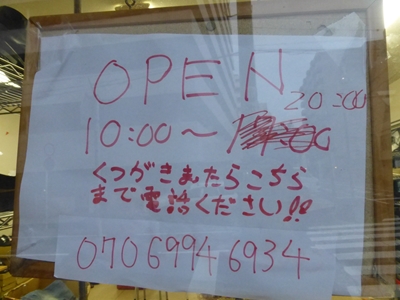 OPEN
20:00
10:00〜
くつがきまたらこちら
まで電話ください!!
070 6994 6934